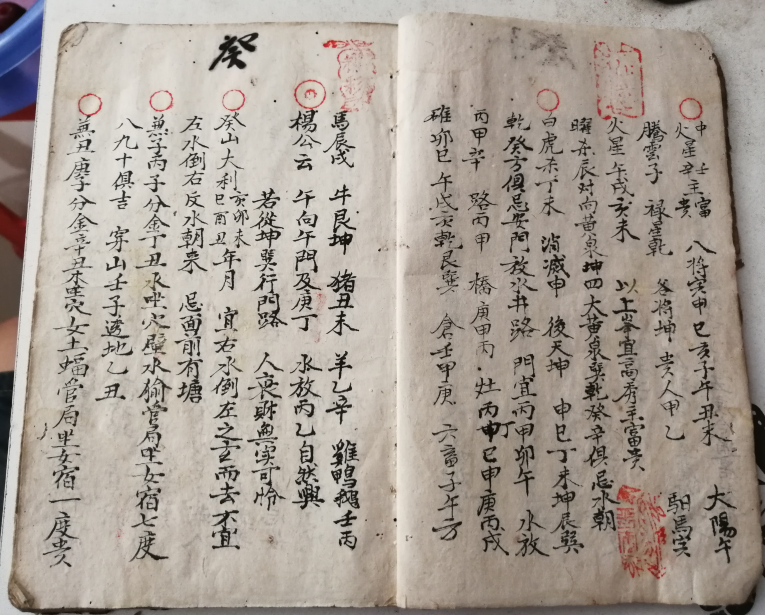 火星辛主富貴 八將寅申巳亥子午丑未 大陽午
騰雲子 祿星乾 答將坤 貴人甲乙 馹馬寅
火星午戌亥未 以上峯宜高秀主富貴
曜杀辰对向黃泉坤四大黃泉巽乾癸辛俱忌水朝
白虎杀丁未 消滅申 後天坤 申巳丁未坤辰巽
乾癸方俱忌安門放水井路 門宜丙甲卯午 水放
丙甲辛 路丙甲 橋庚甲丙 灶丙申丁巳申庚丙戌
碓卯巳 午戌亥乾艮巽 倉壬甲庚 六畜子午方
癸
馬辰戌 牛艮坤 猪丑未 羊乙辛 雞鴨鵝壬丙
楊公云 午向午門及庚丁 水放丙乙自然興
若從坤巽行門路 人丧財無实可怜
癸山大利亥卯未巳酉丑年月 宜右水倒左之立而去不宜
左水倒右反水朝来 忌面前有塘
兼子丙子分金丁丑水坐穴壁水貐管局坐女宿七度
八九十俱吉 穿山壬子透地乙丑
兼丑庚子分金辛丑木坐穴女土蝠管局坐女宿一度貴